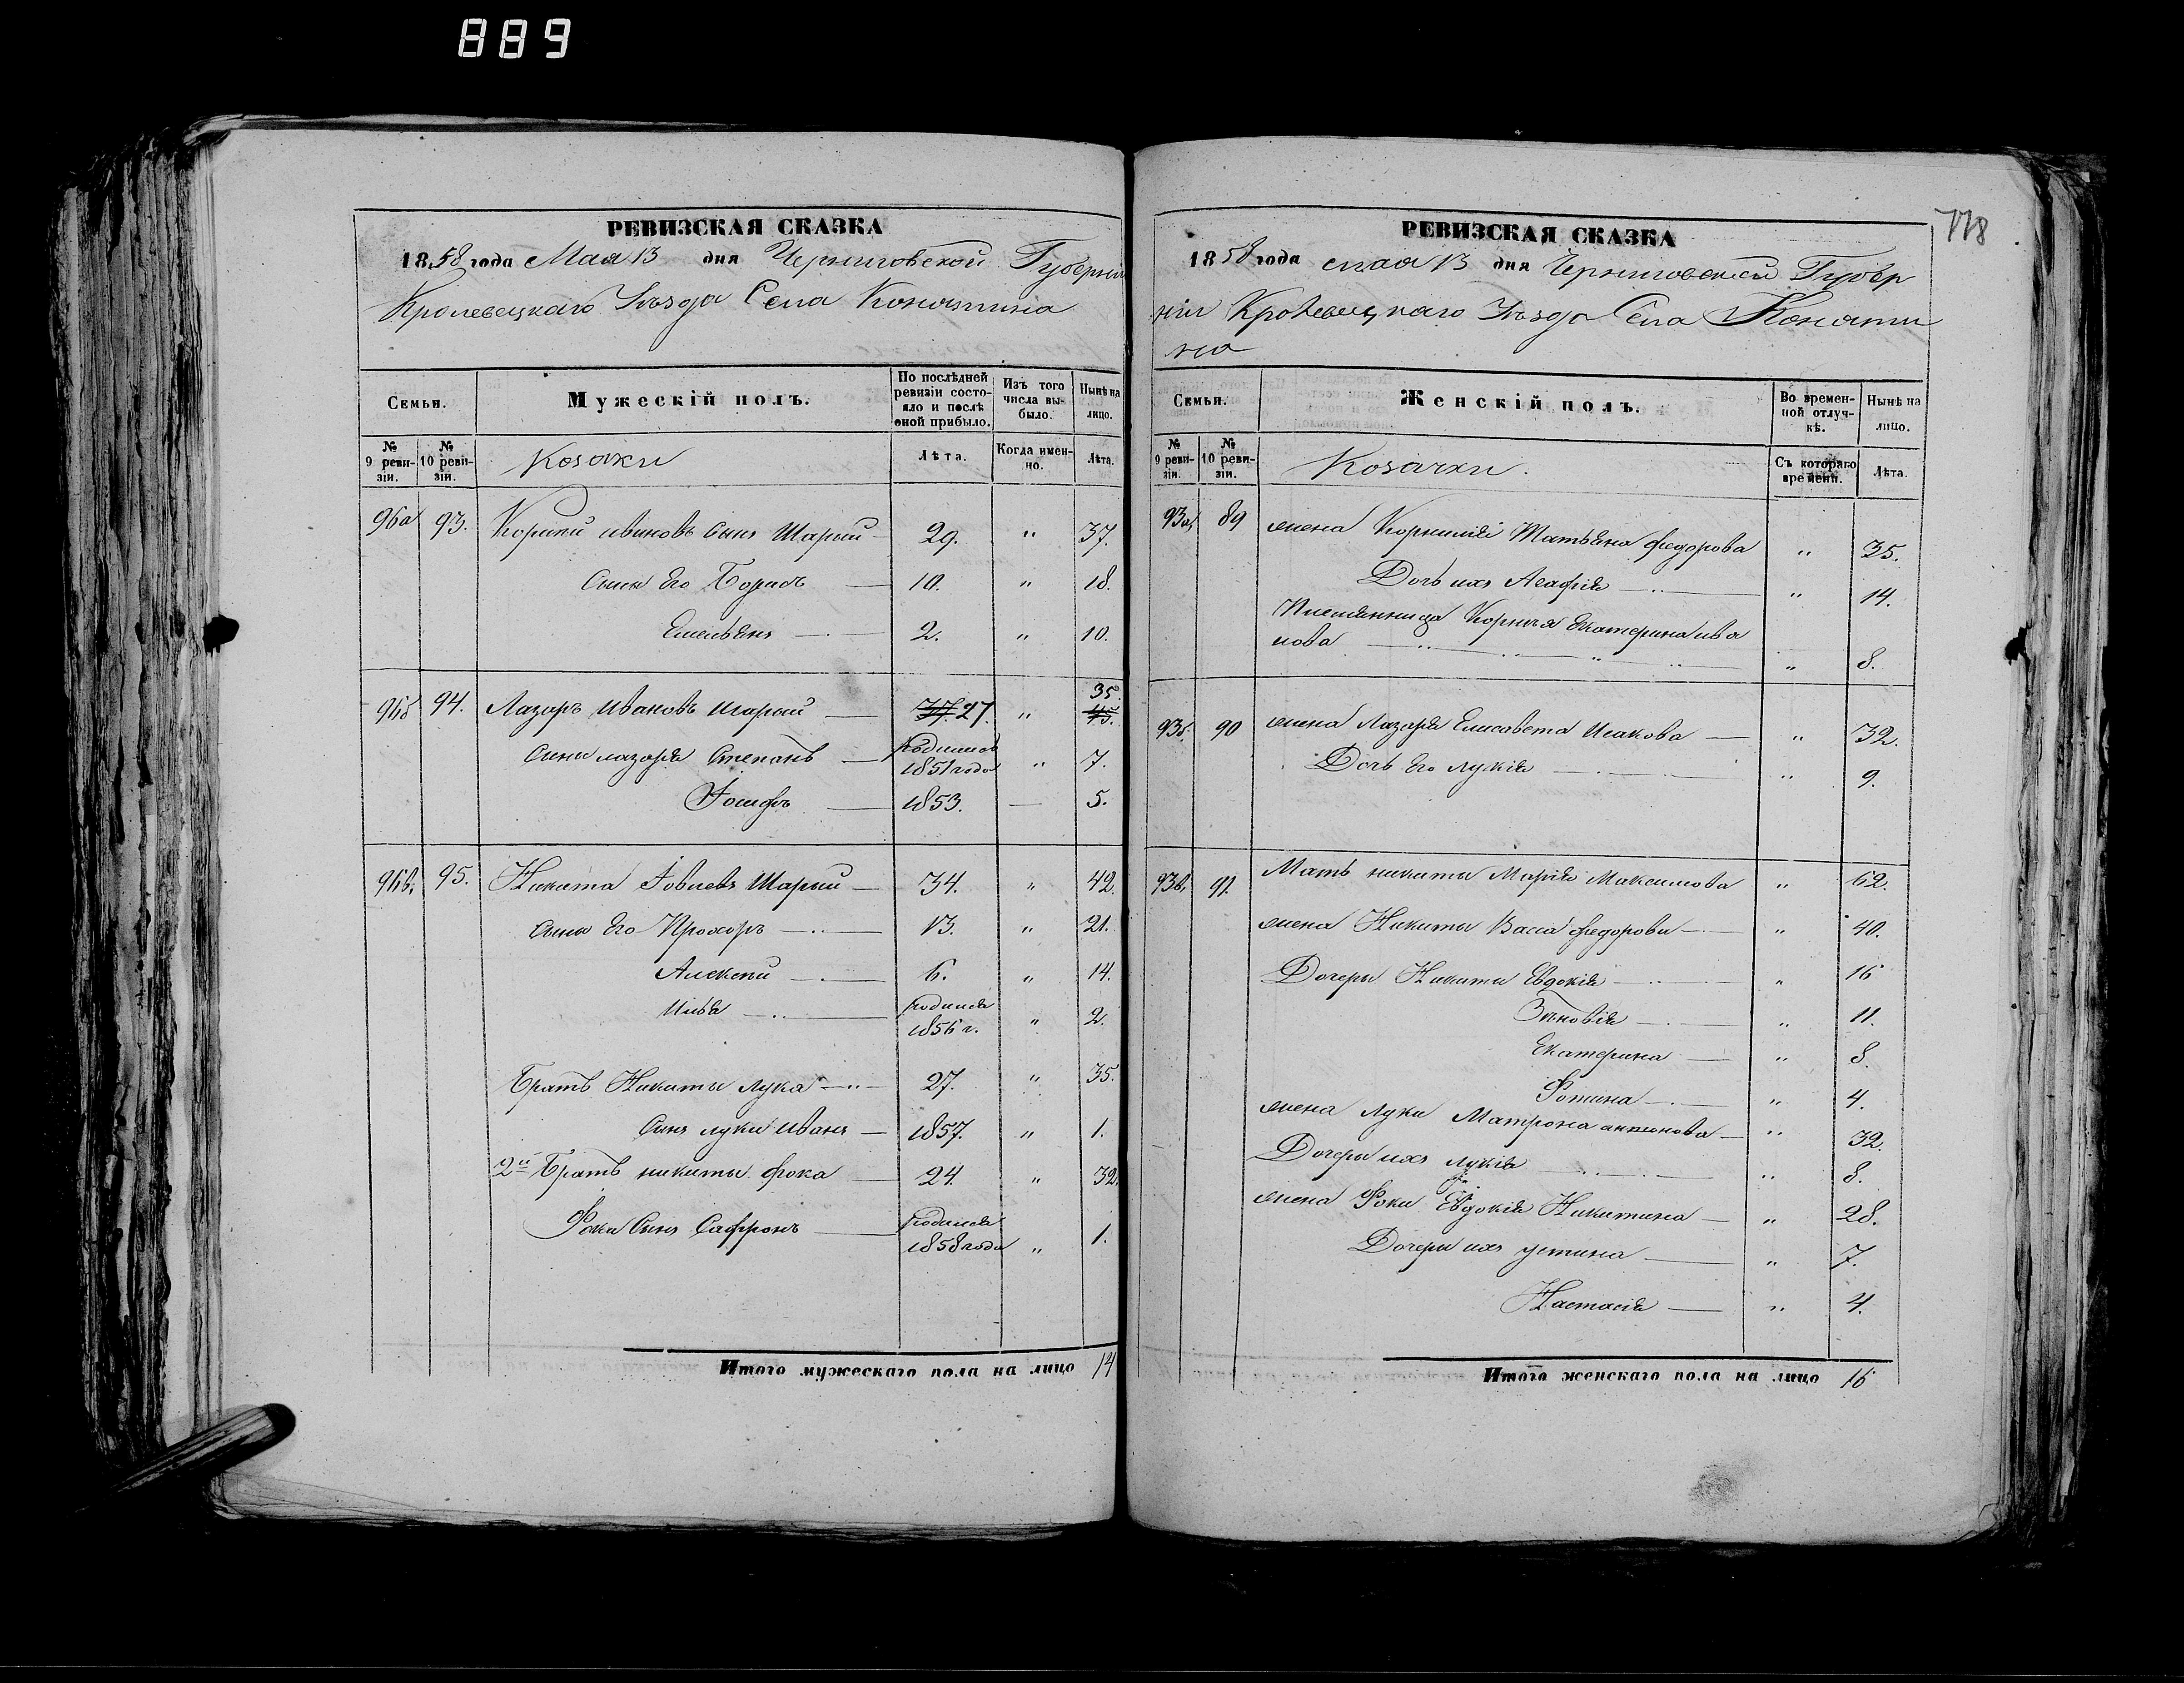 889
РЕВИЗСКАЯ СКАЗКА
1858 года Мая 13 дня Черниговской Губерніи
Кролевецкаго Уѣзда Села Конятина
Семьи. Мужескій полъ. По послѣдней ревизіи состояло и послѣ оной прибыло. Изъ того числа выбыло. Нынѣ на лицо.
№ 9 ревизіи. № 10 ревизіи. Козаки Лѣта. Когда именно. Лѣта.
96а 93. Корнѣй ивановъ Сынъ Шарый 29. " 37.
Сыны Его Борисъ 10. " 18.
Емельянъ 2. " 10.
96б 94. Лазарь Ивановъ Шарый 37. 27. " 35. 45.
Сыны лазаря Степанъ родился 1851 года " 7.
Іосифъ 1853. 5.
96в. 95. Никита Іовлевъ Шарый 34. " 42.
Сыны Его Прохоръ 13. " 21.
Алексѣй 6. " 14.
Илья родился 1856 г. " 2.
Братъ Никиты Лука 27. " 35.
Сынъ луки Иванъ 1857. " 1.
2й Братъ никиты фока 24. " 32.
Фоки Сынъ Сафронъ родился 1858 года " 1.
Итого мужескаго пола на лицо 14
778
РЕВИЗСКАЯ СКАЗКА
1858 года мая 13 дня Черниговской Губер
ніи Кролевецкаго Уѣзда Села Коняти
на
Семьи. Женскій полъ. Во временной отлучкѣ. Нынѣ на лицо.
№ 9 ревизіи. № 10 ревизіи. Козачки. Съ котораго времени. Лѣта.
93а 89 жена Корнилія Татьяна федорова " 35.
Дочь ихъ Агафія " 14.
Племянница Корнея Екатерина ива
нова " 8.
93б. 90 жена Лазаря Елисавета Исакова " 32.
Дочь Его лукія " 9.
93в. 91. Мать никиты Марія Максимова " 62.
жена Никиты Васса федорова " 40.
Дочеры Никиты Евдокія " 16
Зѣновія " 11.
Екатерина " 8.
Фотина " 4.
жена Луки Матрона антонова " 32.
Дочеры ихъ лукія " 8.
жена Фоки Евдокія Никитина " 28.
Дочеры ихъ устина " 7.
Настасія " 4.
Итого женскаго пола на лицо 16